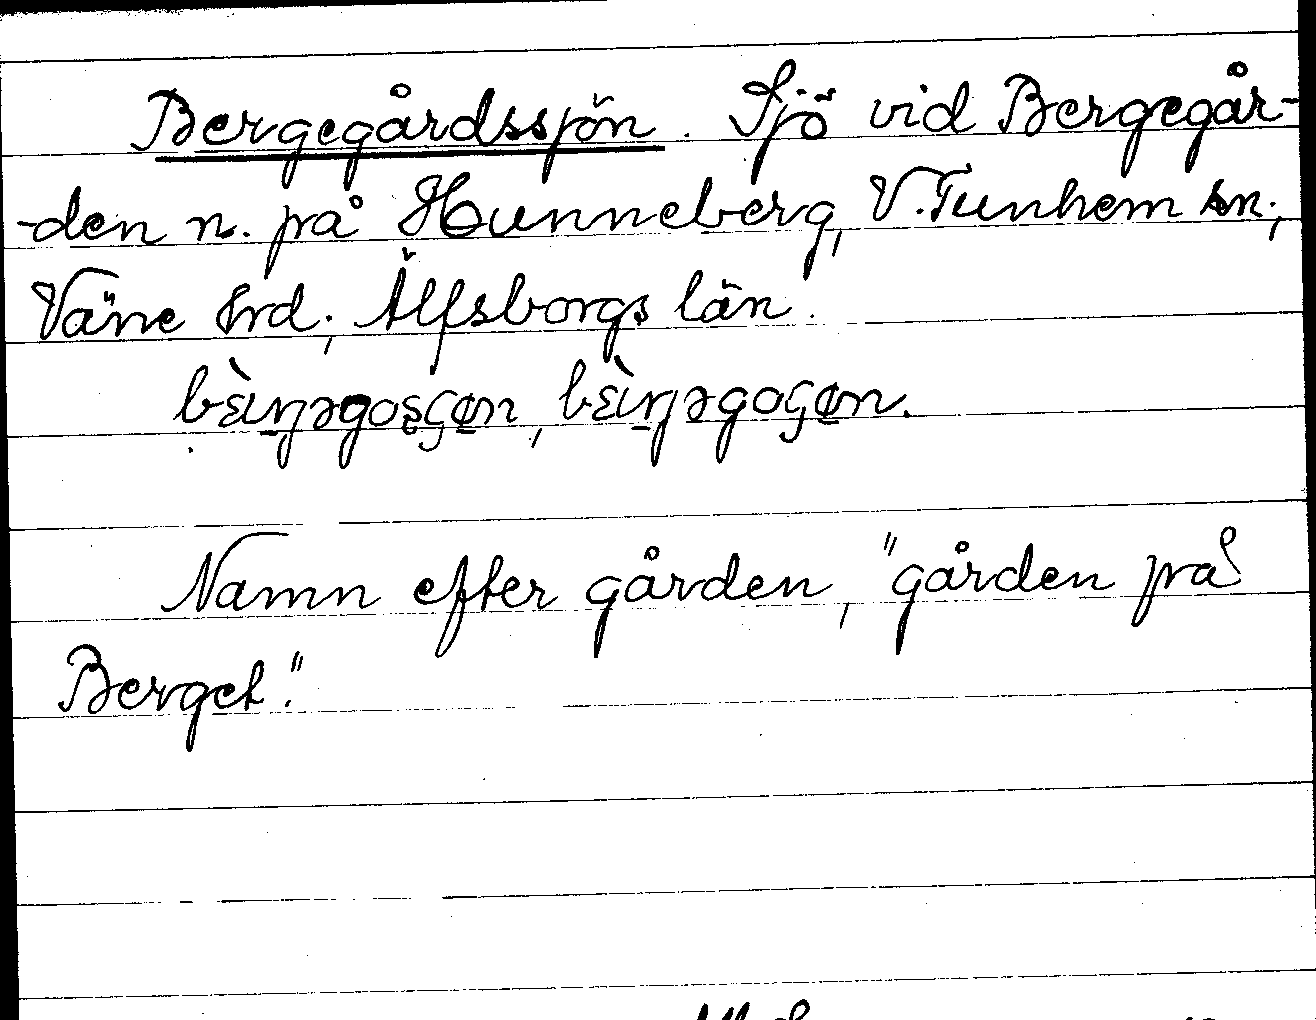 Bergegårdssjön. Sjö vid Bergegår-
-den n. på Hunneberg, V. Tunhem sn;
Väne hrd; Älfsborgs län.
Namn efter gården, "gården på
Berget."